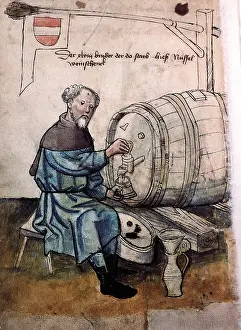 Der ellend bruder der do starb hieß Nüssel
weinschenck
4